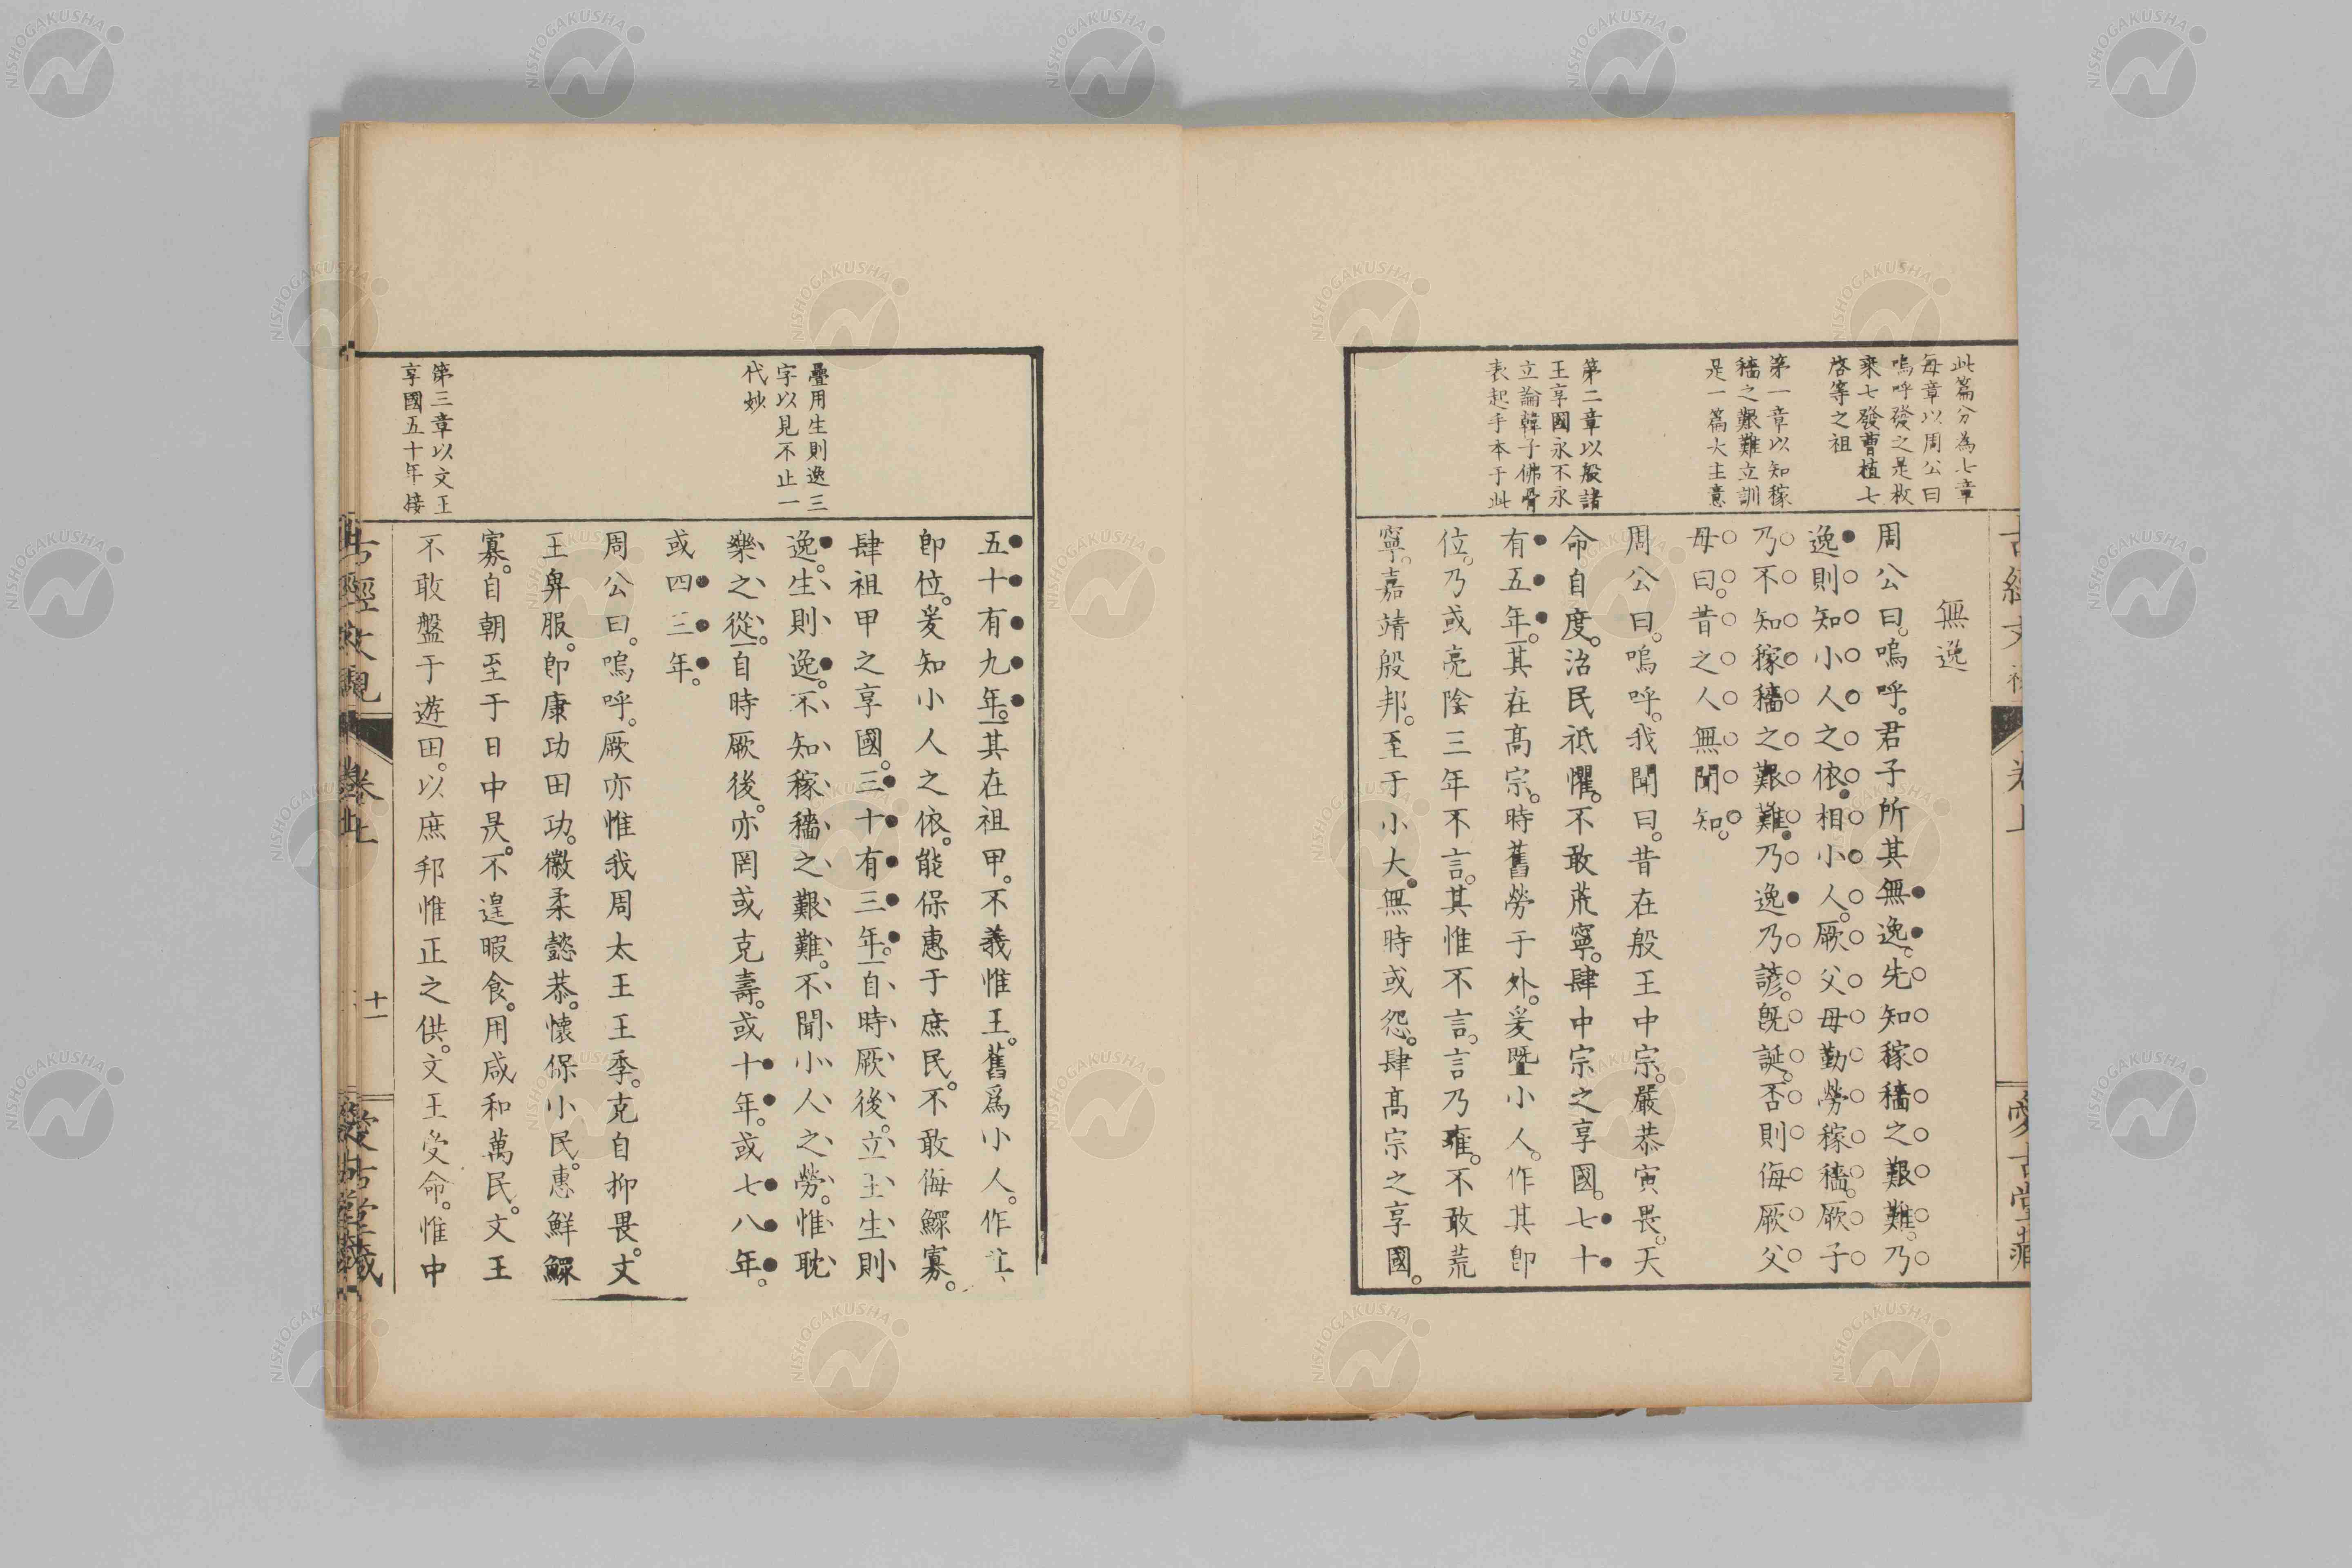 此篇分為七章
每章以周公曰
嗚呼發之是枚
乘七發曹植七
啓等之祖
第一章以知稼
穡之艱難立訓
是一篇大主意
第二章以殷諸
王享國永不永
立論韓子佛骨
表起手本于此
無逸
周公曰。嗚呼。君子所其無逸。先知稼穡之艱難。乃
逸則知小人之依。相小人。厥父母勤勞稼穡。厥子
乃不知稼穡之艱難。乃逸乃諺。既誕。否則侮厥父
母曰。昔之人無聞知。
周公曰。嗚呼。我聞曰。昔在殷王中宗。嚴恭寅畏。天
命自度。治民祗懼。不敢荒寧。肆中宗之享國。七十
有五年。其在高宗。時舊勞于外。爰暨小人。作其卽
位。乃或亮陰三年不言。其惟不言。言乃雍。不敢荒
寧。嘉靖殷邦。至于小大。無時或怨。肆高宗之享國。
疊用生則逸三
字以見不止一
代妙
第三章以文王
享國五十年接
五十有九年。其在祖甲。不義惟王。舊爲小人。作其
卽位。爰知小人之依。能保惠于庶民。不敢侮鰥寡。
肆祖甲之享國。三十有三年。自時厥後。立王生則
逸。生則逸。不知稼穡之艱難。不聞小人之勞。惟耽
樂之從。自時厥後。亦罔或克壽。或十年。或七八年。
或四三年。
周公曰。嗚呼。厥亦惟我周太王王季。克自抑畏。文
王卑服。卽康功田功。徽柔懿恭。懷保小民。惠鮮鰥
寡。自朝至于日中昃。不遑暇食。用咸和萬民。文王
不敢盤于遊田。以庶邦惟正之供。文王受命。惟中
卷上
十一
愛古堂藏
NISHOGAKUSHA